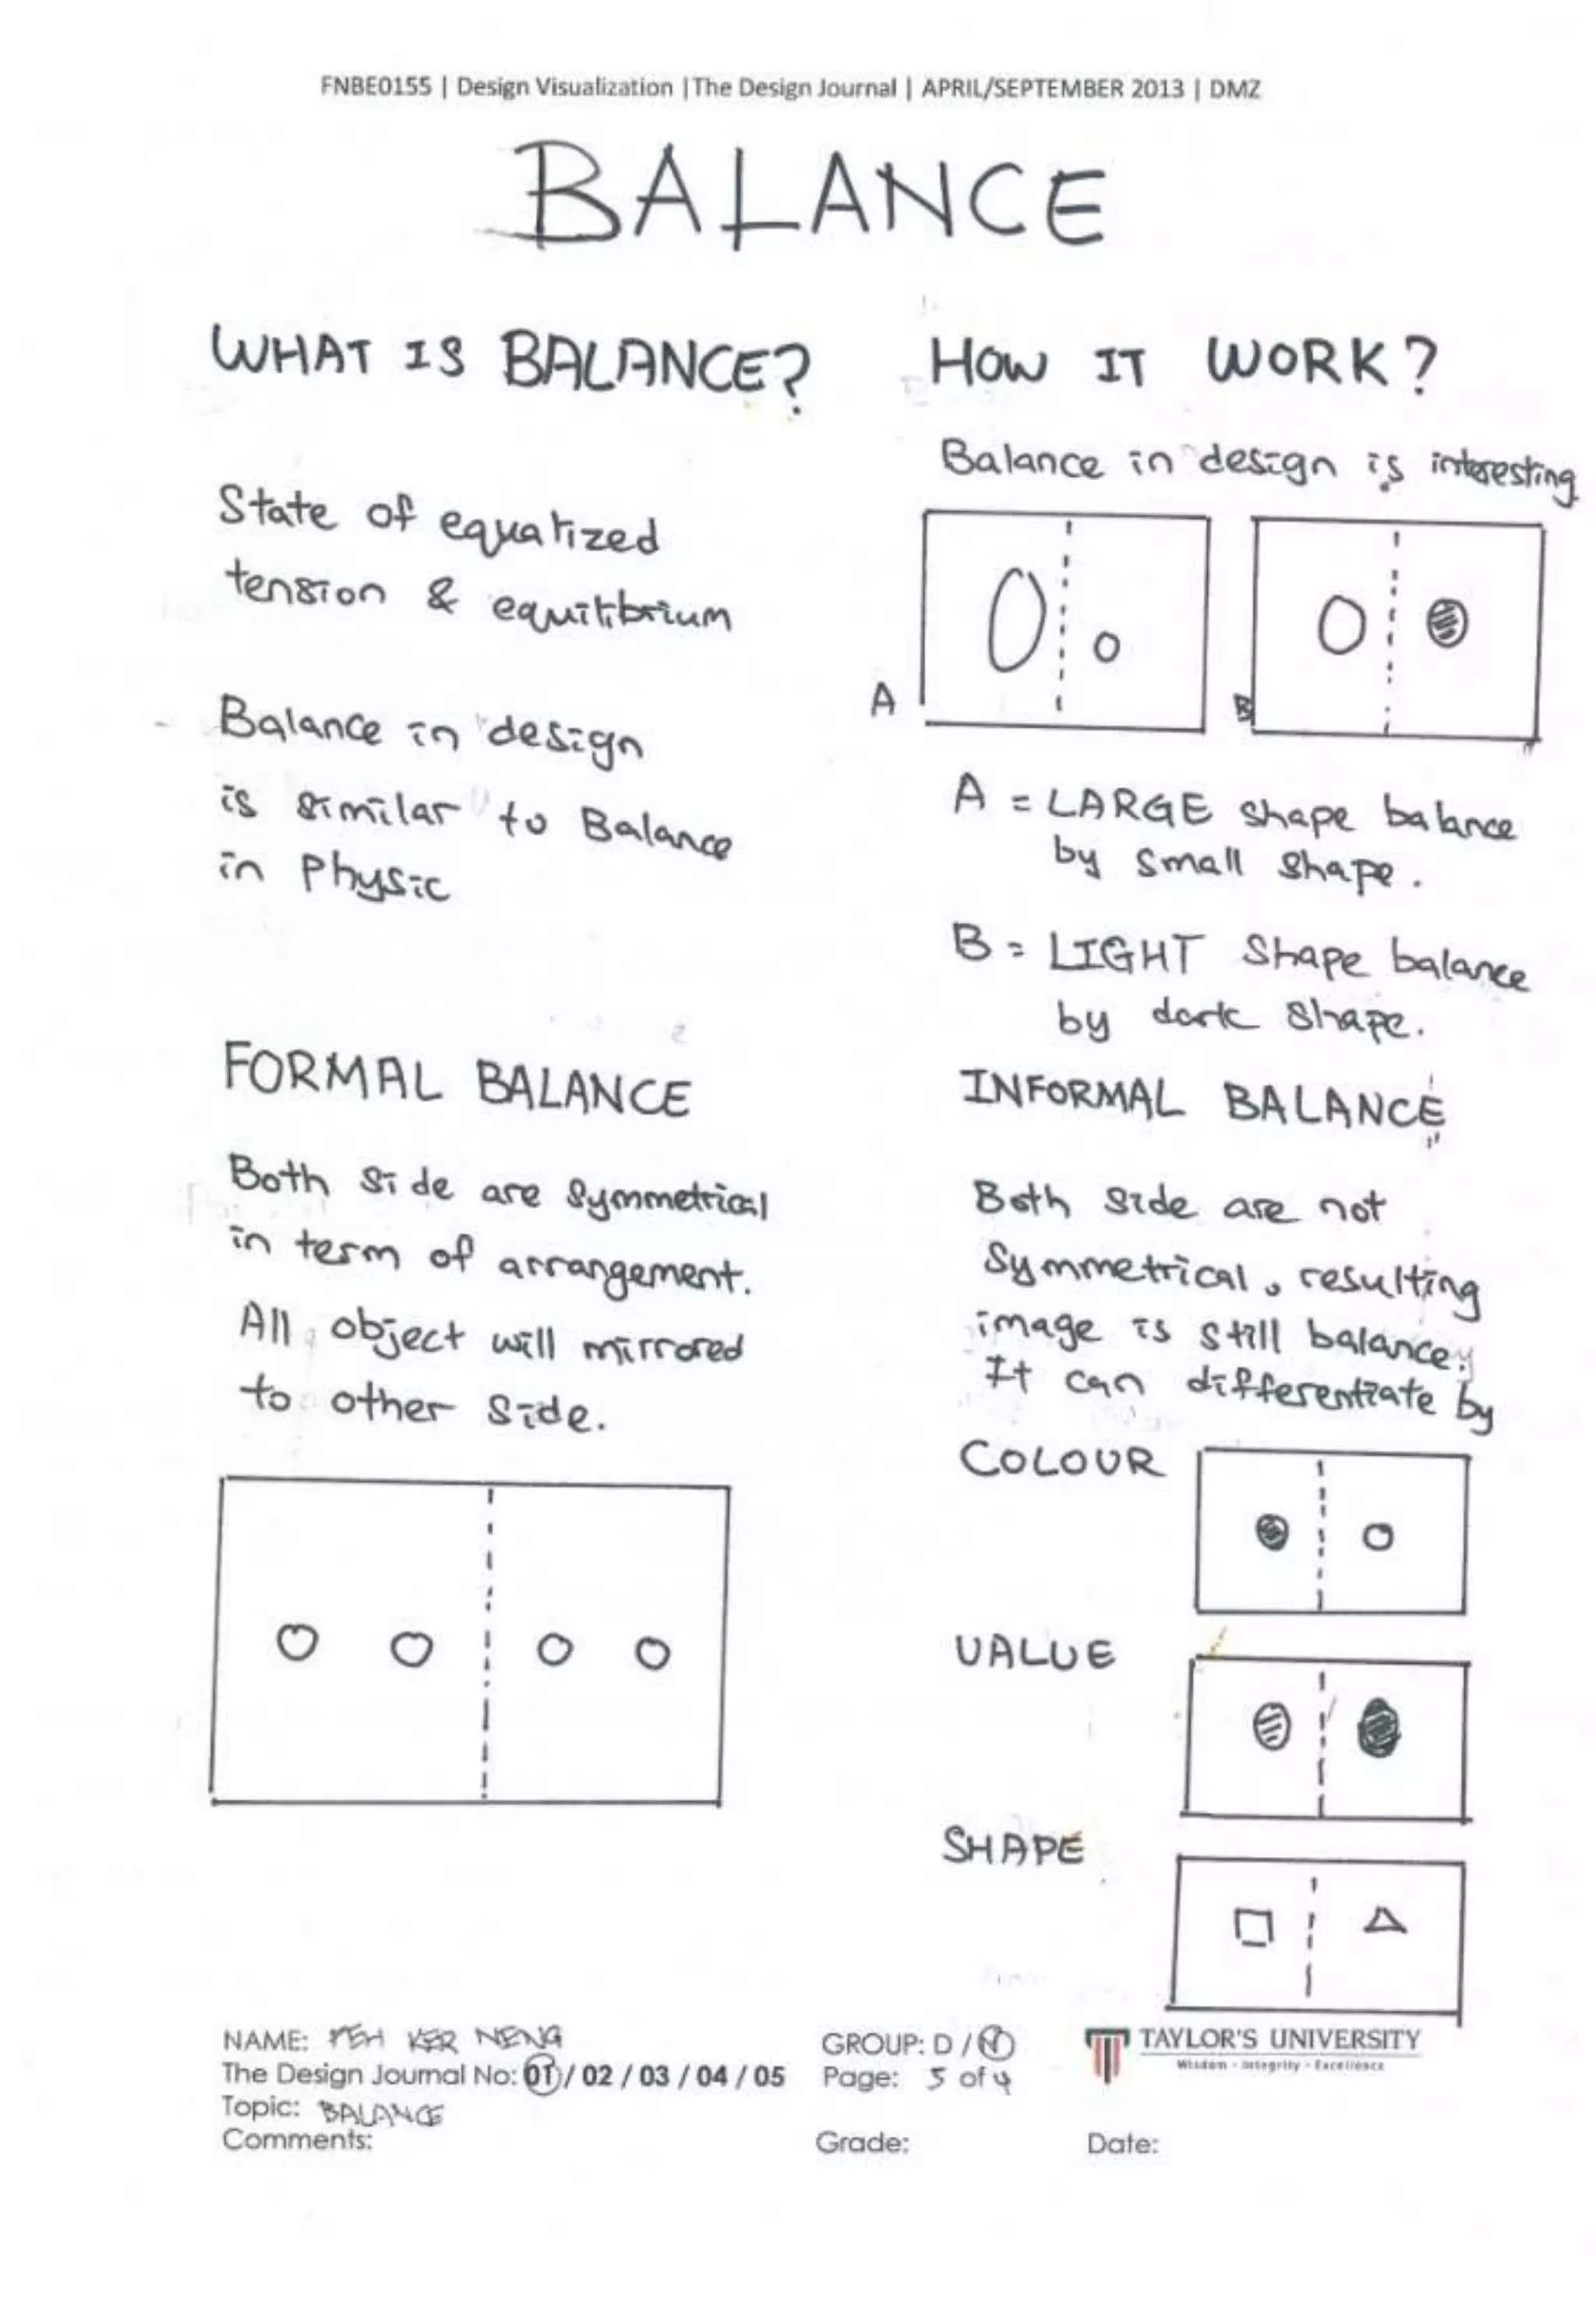 FNBE0155 | Design Visualization | The Design Journal | APRIL/SEPTEMBER 2013 | DMZ
BALANCE
WHAT IS BALANCE?
State of equalized
tension & equilibrium
Balance in design
is similar to Balance
in Physic
HOW IT WORK?
Balance in design is interesting
A
B
A = LARGE shape balance
by small shape.
B = LIGHT shape balance
by dark shape.
FORMAL BALANCE
Both side are symmetrical
in term of arrangement.
All object will mirrored
to other side.
INFORMAL BALANCE
Both side are not
symmetrical, resulting
image is still balance.
It can differentiate by
COLOUR
VALUE
SHAPE
NAME: PEH KER NENG
The Design Journal No: 01 / 02 / 03 / 04 / 05
Topic: BALANCE
Comments:
GROUP: D / N
Page: 3 of 4
Grade:
TAYLOR'S UNIVERSITY
Wisdom · Integrity · Excellence
Date: